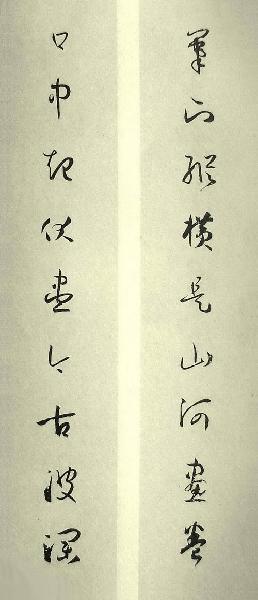 筆下縱橫是山河畫卷
口中起伏盡今古波瀾